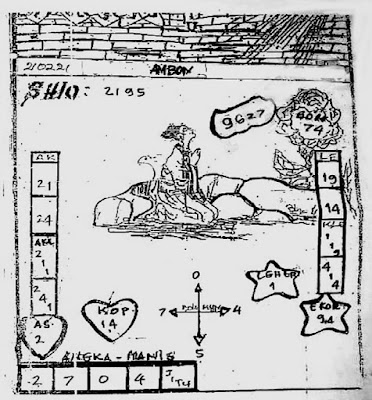 210221
AMBON
SHIO: 2195
9627
74
AK
21
24
2
1
1
2
4
1
AS
2
KOP
14
0
7
4
5
LEHER
1
LE
19
14
1
1
9
4
1
4
EKOR
94
ANGKA - MANIS
2 7 0 4